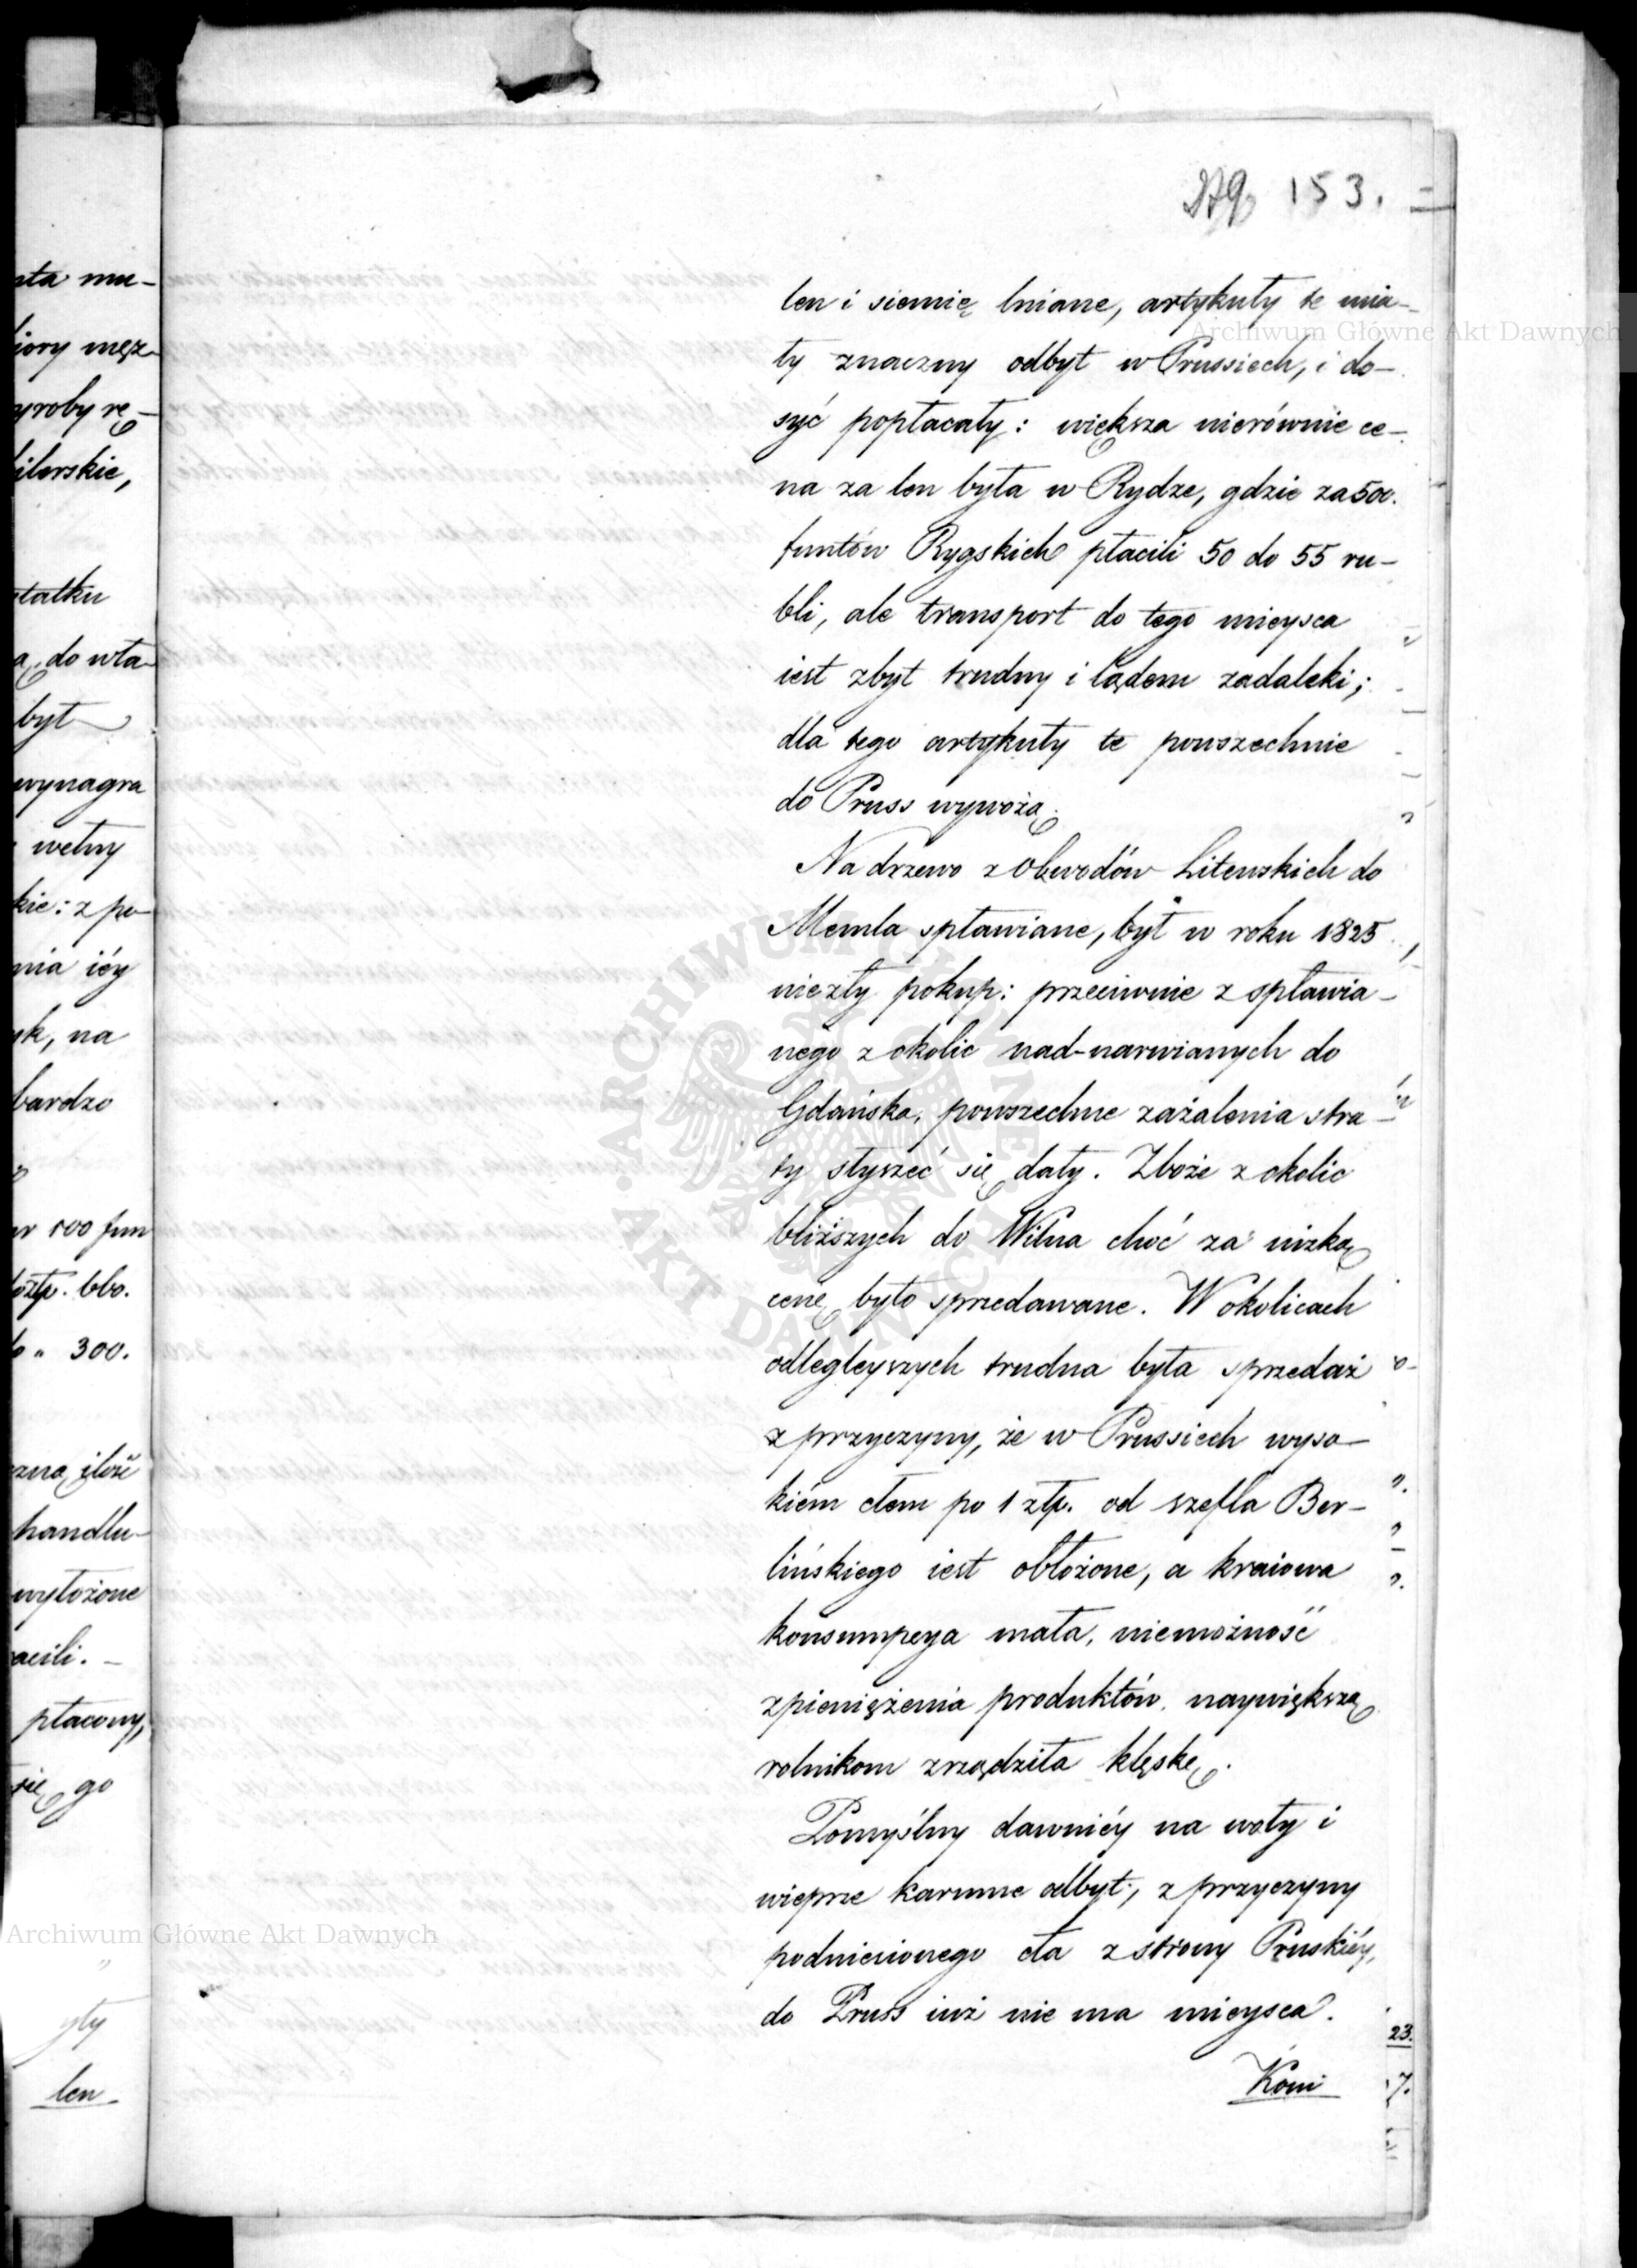 153.
len i siemię lniane, artykuły te mia-
ły znaczny odbyt w Prussiech, i do-
syć popłacały: większa nierównie ce-
na za len była w Rydze, gdzie za 500.
funtów Rygskich płacili 50 do 55 ru-
bli, ale transport do tego mieysca
iest zbyt trudny i lądem zadaleki;
dla tego artykuły te powszechnie
do Pruss wywożą.
Na drzewo z Obwodów Litewskich do
Memla spławiane, był w roku 1825
niezły pokup: przeciwnie z spławia-
nego z okolic nad-narwianych do
Gdańska, powszechne zażalenia stra-
ty słyszeć się dały. Zboże z okolic
bliższych do Wilna choć za nizką
cenę było sprzedawane. W okolicach
odległeyszych trudna była sprzedaż
z przyczyny, że w Prussiech wyso-
kiém cłem po 1 złp. od szefla Ber-
lińskiego iest obłożone, a kraiowa
konsumpcya mała, niemożność
zpieniężenia produktów, naywiększą
rolnikom zrządziła klęskę.
Pomyślny dawniéy na woły i
wieprze karmne odbyt, z przyczyny
podniesionego cła z strony Pruskiéy,
do Pruss iuż nie ma mieysca.
Koni
ta mu-
iory męz-
yroby rę-
ilerskie,
tatku
a, do wła-
byt
wynagra
wełny
kie: z po-
nia iéy
yk, na
bardzo
w 100 fun
złp. 660.
" 300.
czną ilość
handlu-
wyłożone
acili. -
płacony,
się go
yły
len
23.
7.
Archiwum Główne Akt Dawnych
Archiwum Główne Akt Dawnych
ARCHIWUM GŁÓWNE AKT DAWNYCH